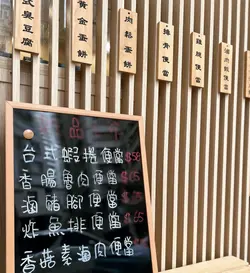 式臭豆腐
黃金蛋餅
肉鬆蛋餅
排骨便當
雞腿便當
滷肉飯便當
品
台式蝦捲便當$58
香腸魯肉便當$
滷豬腳便當
炸魚排便當$65
香菇素滷肉便當